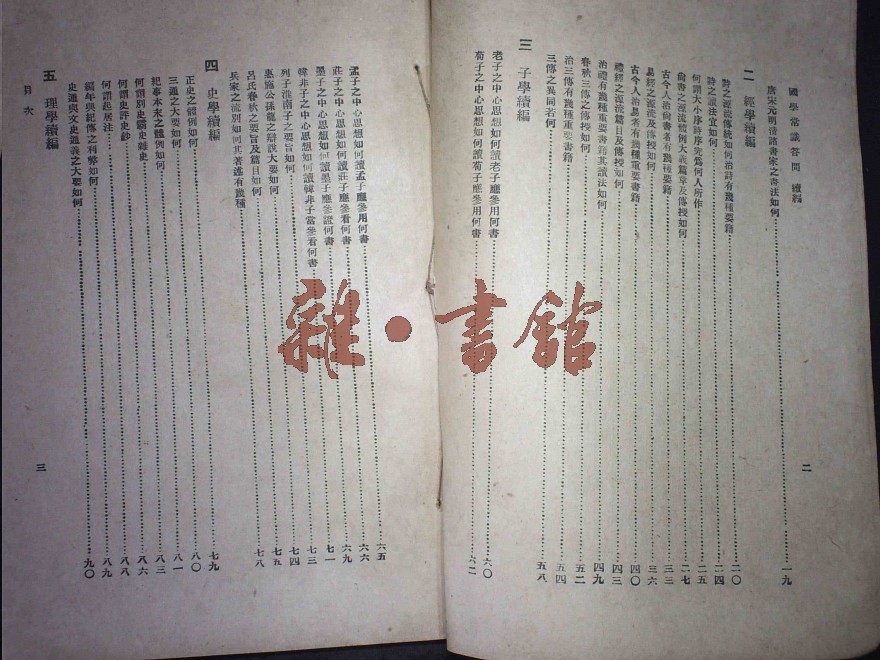 國學常識答問 續編
唐宋元明清諸書家之書法如何 一九
二 經學續編
詩之源流傳統如何治詩有幾種要籍 二〇
詩之讀法宜如何 二四
何謂大小序詩序究爲何人所作 二五
尙書之源流體例大義篇章及傳授如何 二七
古今人治尙書者有幾種要籍 三三
易經之源流及傳授如何 三六
古今人治易者有幾種重要書籍 四〇
禮經之源流篇目及傳授如何 四三
治禮有幾種重要書籍其讀法如何 四九
春秋三傳之傳授如何 五二
治三傳有幾種重要書籍 五四
三傳之異同若何 五八
三 子學續編
老子之中心思想如何讀老子應參用何書 六〇
荀子之中心思想如何讀荀子應參用何書 六二
二
孟子之中心思想如何讀孟子應參用何書 六五
莊子之中心思想如何讀莊子應參看何書 六六
墨子之中心思想如何讀墨子應參證何書 六九
韓非子之中心思想如何讀韓非子當參看何書 七一
列子淮南子之要旨如何 七三
惠施公孫龍之辯說大要如何 七四
呂氏春秋之要旨及篇目如何 七五
兵家之流別如何其著述有幾種 七八
四 史學續編 七九
正史之體例如何 八〇
三通之大要如何 八一
紀事本末之體例如何 八三
何謂別史霸史雜史 八六
何謂史評史鈔 八八
何謂起居注 八九
編年與紀傳之利弊如何
史通與文史通義之大要如何 九〇
五 理學續編
目次
三
雜·書館